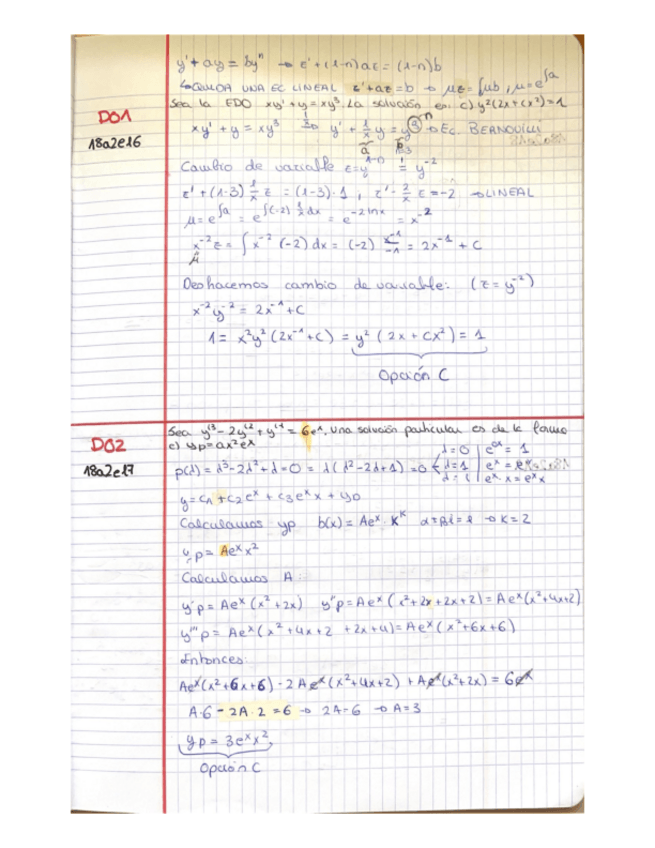 y' + ay = by^n → z' + (1-n)az = (1-n)b
↳ QUEDA UNA EC LINEAL z' + az = b → μz = ∫μb, μ = e^∫a
DO1
18a2e16
Sea la EDO xy' + y = xy³. La solución es: c) y²(2x + cx²) = 1
xy' + y = xy³ → y' + 1/x y = y³ → Ec. BERNOUILLI
a b n=3
Cambio de variable z = y^1-n = y^-2
z' + (1-3) 1/x z = (1-3)·1, z' - 2/x z = -2 → LINEAL
μ = e^∫a = e^∫(-2) 1/x dx = e^-2lnx = x^-2
x^-2 z = ∫x^-2 (-2) dx = (-2) x^-1/-1 = 2x^-1 + C
μ
Deshacemos cambio de variable: (z = y^-2)
x^-2 y^-2 = 2x^-1 + C
1 = x²y² (2x^-1 + C) = y² (2x + Cx²) = 1
Opción C
DO2
18a2e17
Sea y'³ - 2y'² + y'¹ = 6e^x. Una solución particular es de la forma
c) yp = ax²e^x
p(λ) = λ³ - 2λ² + λ = 0 = λ(λ² - 2λ + 1) = 0
λ = 0 e^0x = 1
λ = 1 e^x
λ = 1 e^x·x = e^x x
y = c1 + c2e^x + c3e^x x + yp
Calculamos yp b(x) = Ae^x · x^k → k = 2
yp = Ae^x x²
Calculamos A:
y'p = Ae^x (x² + 2x) y''p = Ae^x (x² + 2x + 2x + 2) = Ae^x (x² + 4x + 2)
y'''p = Ae^x (x² + 4x + 2 + 2x + 4) = Ae^x (x² + 6x + 6)
Entonces:
Ae^x (x² + 6x + 6) - 2Ae^x (x² + 4x + 2) + Ae^x (x² + 2x) = 6e^x
A·6 - 2A·2 = 6 → 2A = 6 → A = 3
yp = 3e^x x²
Opción C